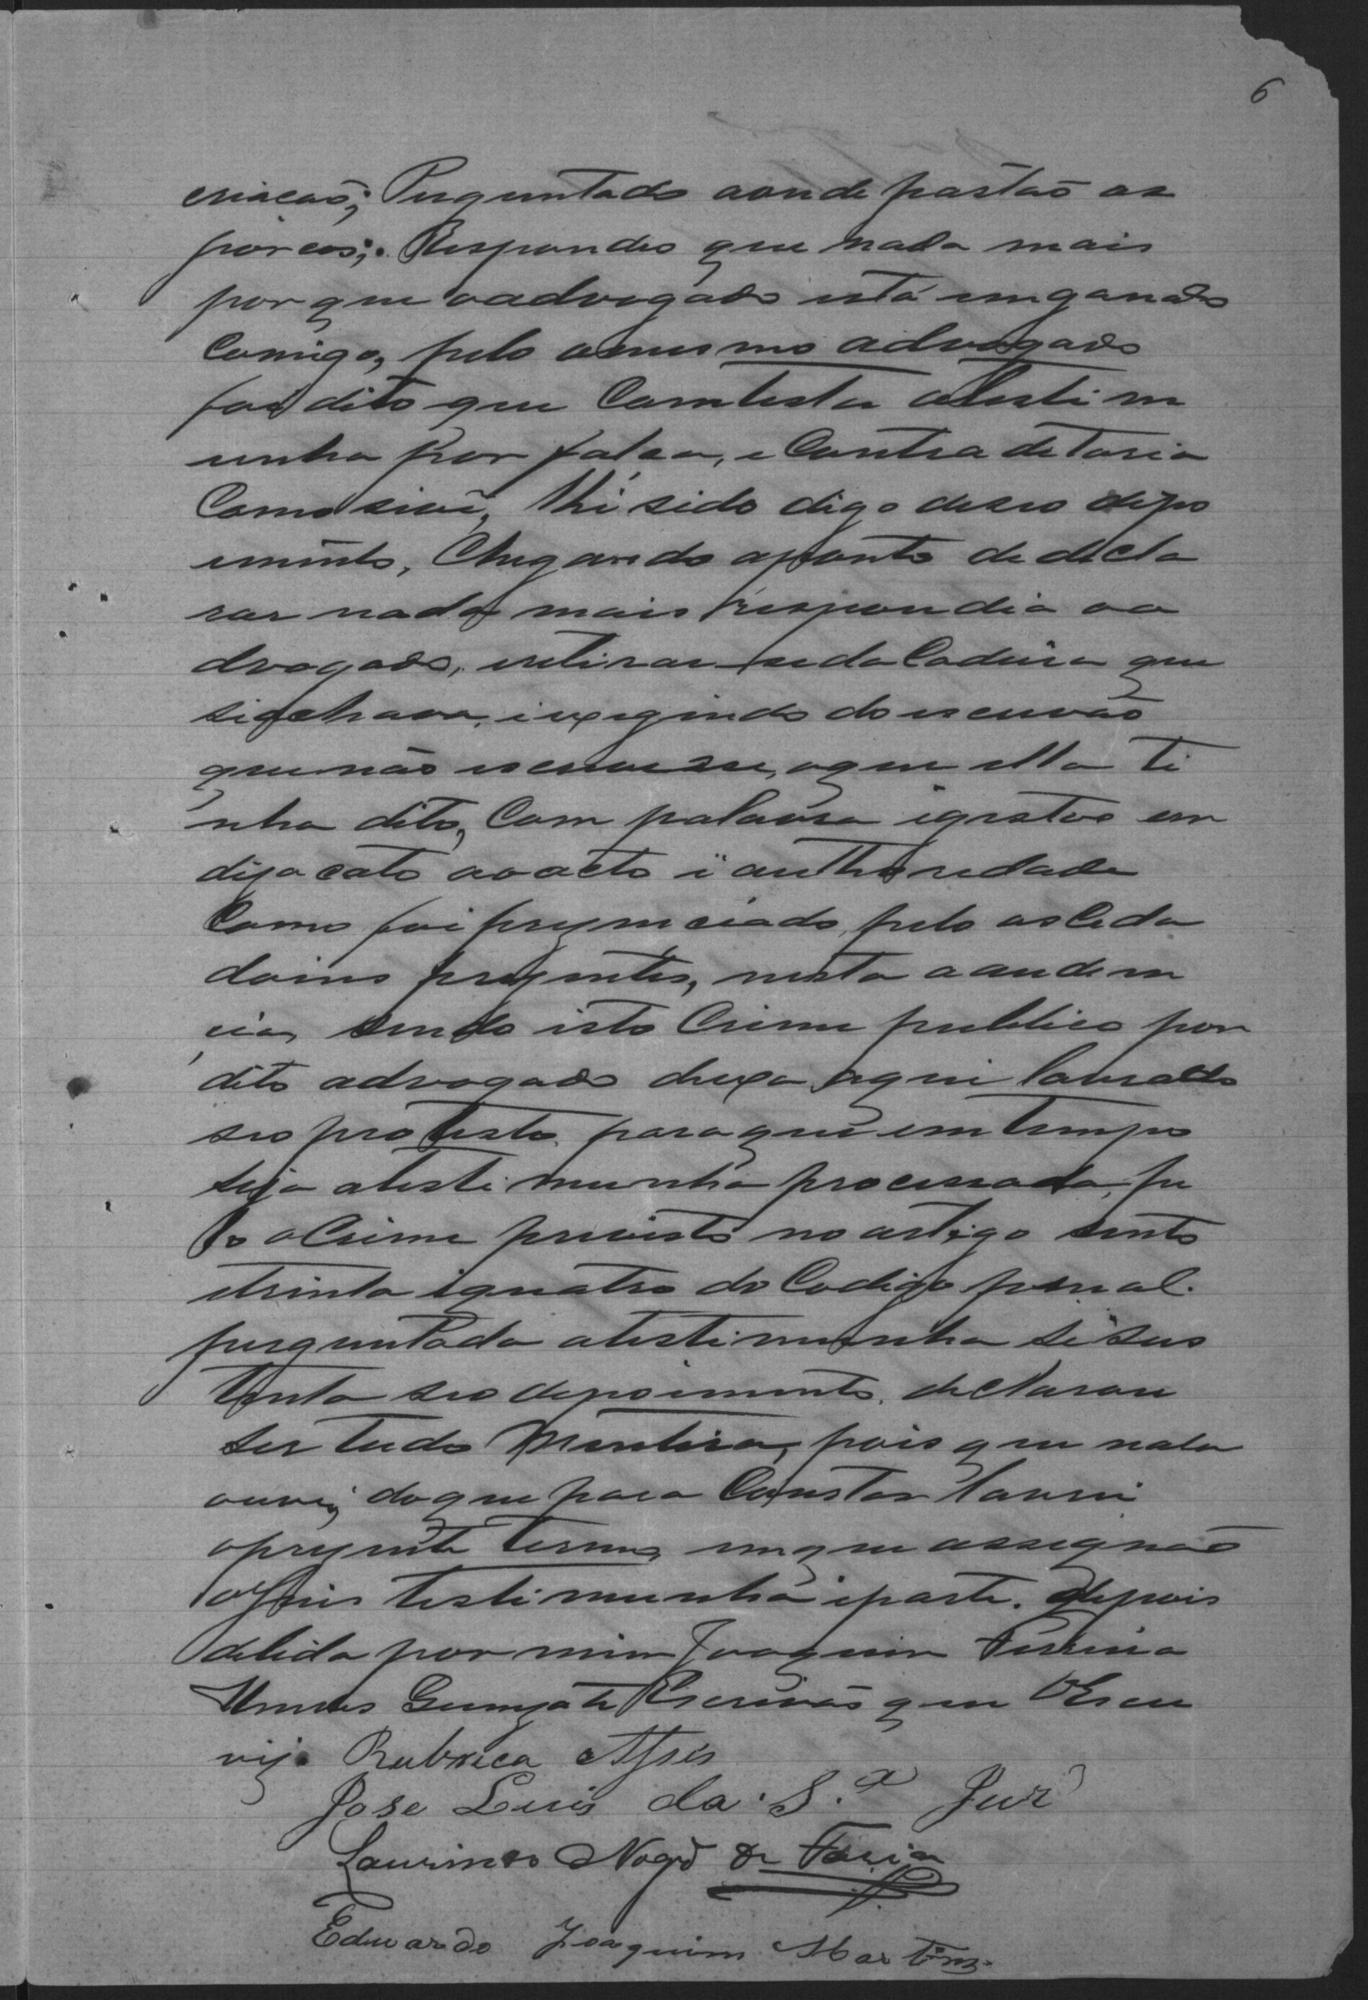 6
criacaõ; Preguntado aonde pastaõ os
porcos; Respondeo que nada mais
por que oadvogado está enganado
Comigo, pelo omesmo advogado
foi dito que Contesta atestim
unha por falsa, e Contradetoria
Como sivê, thi sido digo deseo depo
imento, Chegando aponto de decla
rar nada mais respondia oa
dvogado, retirar seda Cadeira que
siachava, iexegindo do escrivaõ
quenão escrevesse, oque ella ti
nha dito, Com palavra em
dizacato aoacto i authoredade
Como foi prezenciado, pelo os Ceda
dains prezentes, nesta aaudem
cia, sendo isto Crime publico por
dito advogado deixa aqui lavrado
seo protesto, para que em tempo
seja atestimunha processada, pe
lo oCrime previsto no artigo sento
etrinta iquatro do Codigo penal.
perguntada atestimunha si sus
tenta seo depoimento, declarou
ser tudo Mentira, pois que nada
ouvi, doque para Constar lavrei
oprezente termo, emque assegnaõ
oJuis testimunha iparte. depois
delida por mim Joaquim Pereira
Escrivaõ que oEscre
vij. Rubrica Assis
Jose Luis da S.ª Jur
Laurindo Nogrº de Faria
Eduardo Joaquim Martins